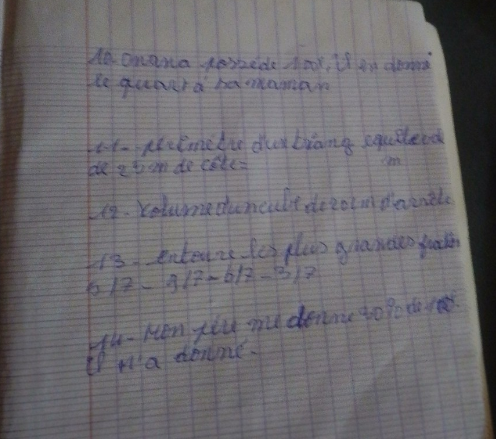 10. Onana possede 100f, il en donne
le quart à sa maman
11 - perimetre d'un triang equilateral
de 25m de côté= m
12. Volume d'un cube de 20cm d'arrête
13 - entoure les plus grandes
5/7 - 9/7 - 6/7 - 3/7
14 - Mon père me donne 30% de
Il m'a donné.